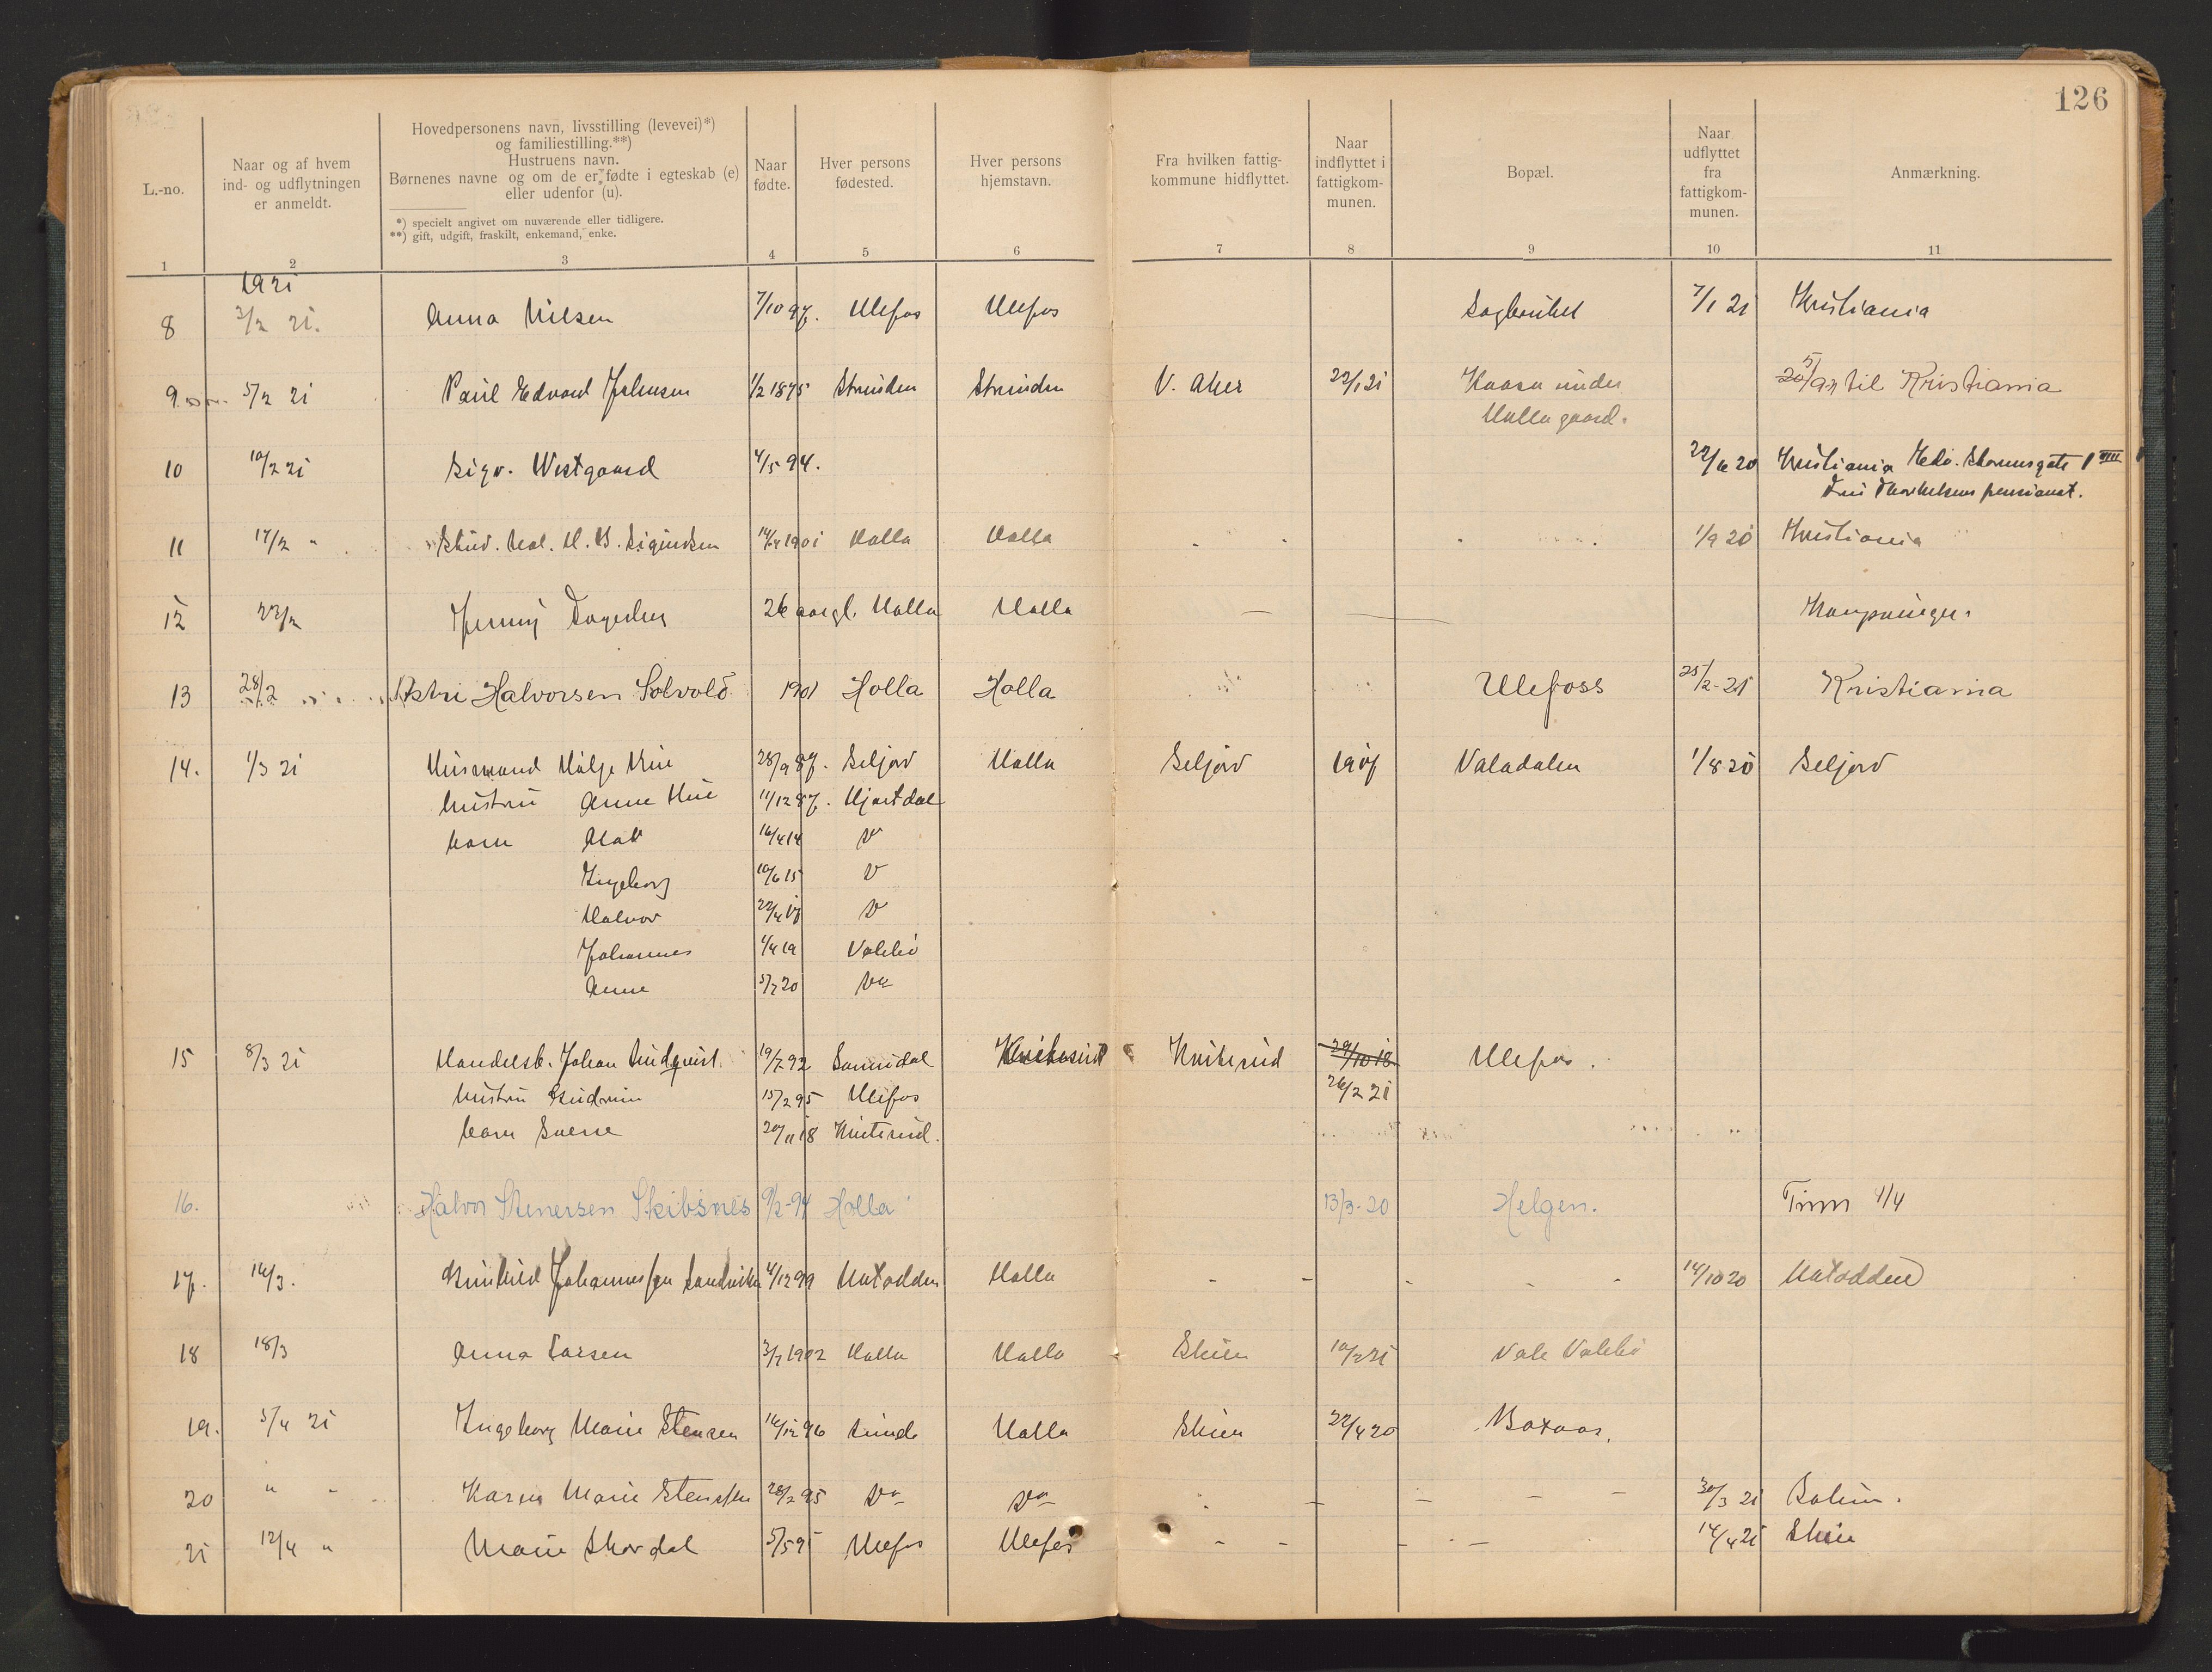 126
L.-no.
Naar og af hvem
ind- og udflytningen
er anmeldt.
Hovedpersonens navn, livsstilling (levevei)*)
og familiestilling.**)
Hustruens navn.
Børnenes navne og om de er fødte i egteskab (e)
eller udenfor (u).
*) specielt angivet om nuværende eller tidligere.
**) gift, udgift, fraskilt, enkemand, enke.
Naar
fødte.
Hver persons
fødested.
Hver persons
hjemstavn.
Fra hvilken fattig-
kommune hidflyttet.
Naar
indflyttet i
fattigkom-
munen.
Bopæl.
Naar
udflyttet
fra
fattigkom-
munen.
Anmærkning.
1 2 3 4 5 6 7 8 9 10 11
1921
8 3/2 21. Anna Nilsen 7/10 97. Ulefos Ulefos 7/1 21 Kristiania
9 5/2 21 Paul Edvard Johnsen 1/2 1875 Strinden Strinden V. Aker 22/1 21 Kaasa under 5/9 21 til Kristiania
Holla gaard.
10 10/2 21 Sigv. Westgaard 4/5 94. 22/6 20 Kristiania Edv. Stormsgate 1 VIII
Fru Thorkelsens pensionat.
11 17/2 " Stud. H. B. Sigurdsen 14/4 1901 Holla Holla 1/9 20 Kristiania
12 23/2 Jenny 26 aar gl. Holla Holla — — Kongsvinger.
13 28/2 Astri Halvorsen Solvold 1901 Holla Holla Ulefoss 25/2-21 Kristiania
14. 1/3 21 Husmand Helge 28/9 87. Seljord Holla Seljord 1907 Valadalen 1/8 20 Seljord
hustru Anne 11/12 87. Hjartdal
barn 16/4 14
Ingeborg 10/6 15
Halvor 22/4 17
Johannes 1/4 19 Valebø
Anne 5/7 20
15 8/3 21 Handelsb. Johan Lindqvist 19/7 92 Sannidal Kviteseid Kviteseid 29/10 18 Ulefos.
hustru Gudrun 15/2 95 Ulefos 26/2 21
barn Sverre 20/11 18 Kviteseid.
16. Halvor Stenersen Skibsnes 9/2-94 Holla 13/3-20 Helgen. Tinn 1/4
17. 16/3. Gunhild Johannessen Sandviken 4/12 99 Notodden Holla - - - - - 14/10 20 Notodden
18 18/3 Anna Larsen 3/7 1902 Holla Holla Skien 10/2 21 Vale Valebø
19. 5/4 21 Ingeborg Marie Stensen 14/12 96 Lunde Holla Skien 22/4 20
20 " - Karen Marie Stensen 28/2 95 Do Do - - - - - 30/3 21
21 12/4 " Marie Skordal 5/5 95 Ulefos Ulefos - - - - 14/4 21 Skien